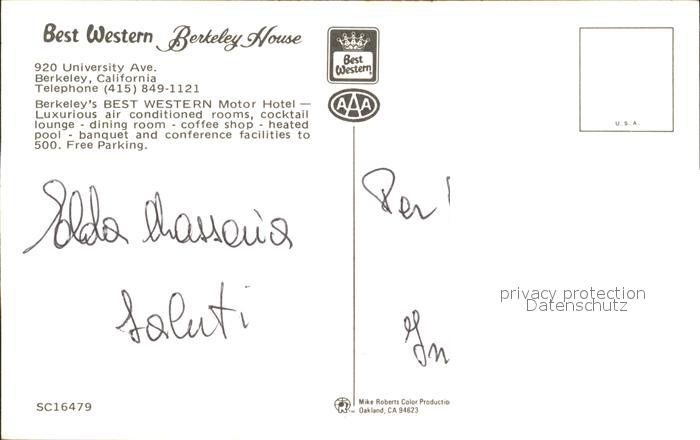 Best Western Berkeley House
920 University Ave.
Berkeley, California
Telephone (415) 849-1121
Berkeley's BEST WESTERN Motor Hotel —
Luxurious air conditioned rooms, cocktail
lounge - dining room - coffee shop - heated
pool - banquet and conference facilities to
500. Free Parking.
Saluti
SC16479
Best
Western
AAA
U.S.A.
Per
privacy protection
Datenschutz
Mike Roberts Color Productio
Oakland, CA 94623